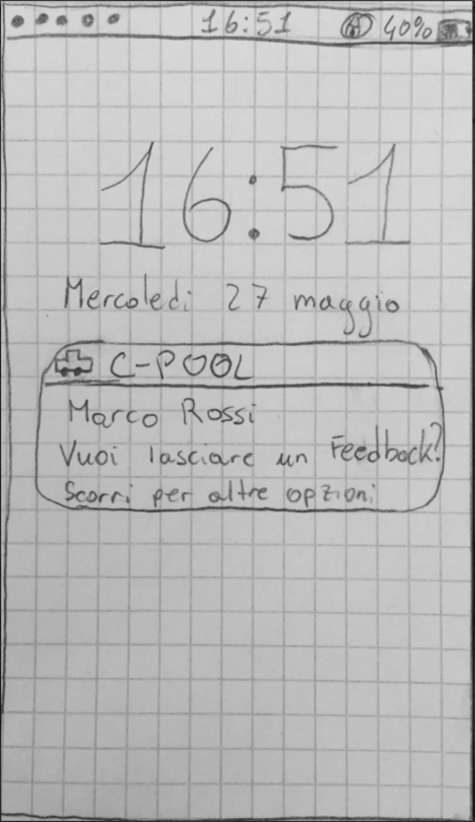 16:51 40%
16:51
Mercoledì 27 maggio
C-POOL
Marco Rossi
Vuoi lasciare un Feedback?
Scorri per altre opzioni